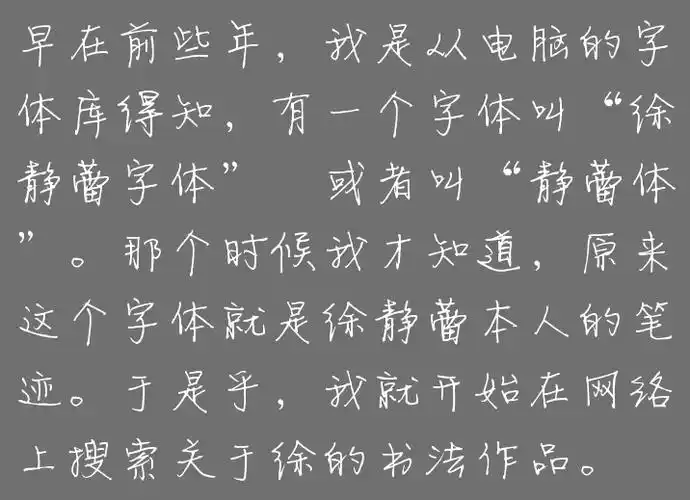 早在前些年，我是从电脑的字
体库得知，有一个字体叫“徐
静蕾字体”　或者叫“静蕾体
”。那个时候我才知道，原来
这个字体就是徐静蕾本人的笔
迹。于是乎，我就开始在网络
上搜索关于徐的书法作品。